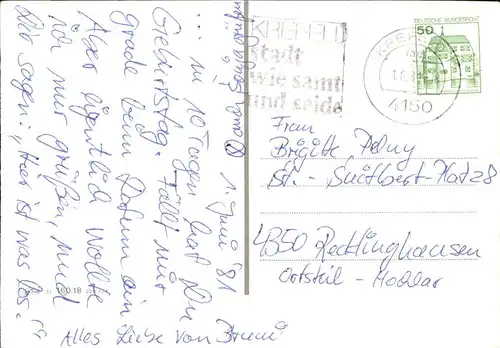 1. Juni 81
... in 10 Tagen hast Du
Geburtstag. Fällt mir
grade beim Datum ein
Aber eigentlich wollte
ich nur grüßen, und
Dir sagen: „Hier ist was los!"
Alles Liebe von
160.18
KREFELD
Stadt
wie samt
und seide
4150
DEUTSCHE BUNDESPOST
50
Frau
Brigitte
St.-Suitbert-Platz 8
4350 Recklinghausen
Ortsteil - Hochlar